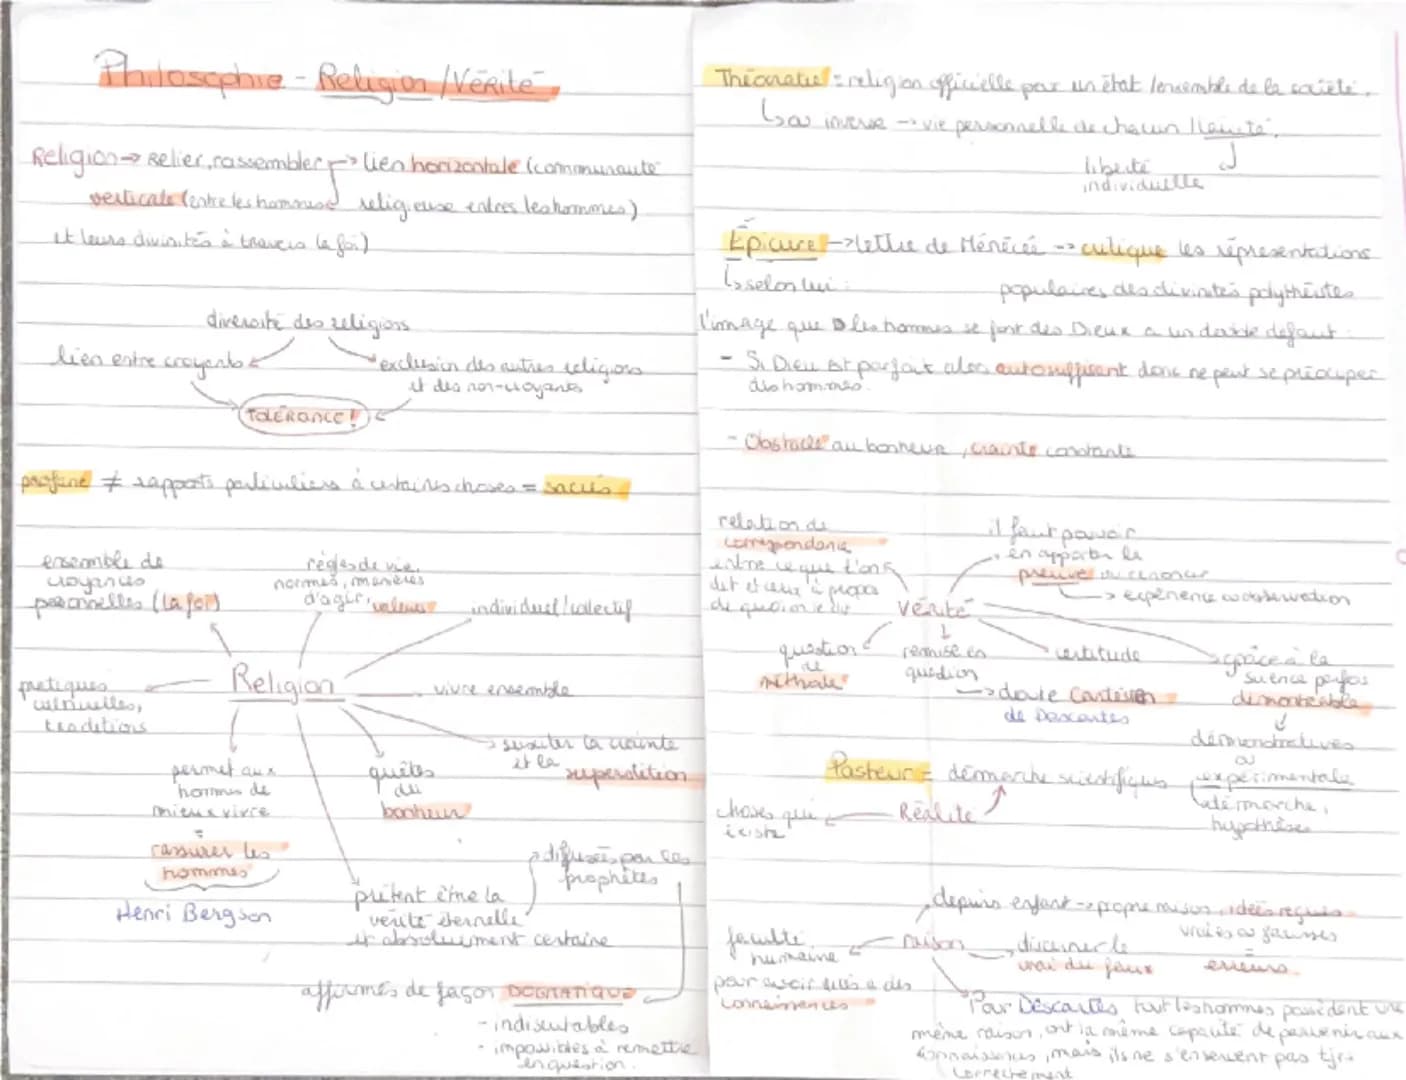 Philosophie - Religion / Vérité
Religion → Relier, rassembler → lien horizontale (communauté
verticale (entre les hommes religieuse entres les hommes)
et leurs divinités à travers la foi)
diversité des religions
lien entre croyants
exclusion des autres religions
et des non-croyants
TOLÉRANCE !
profane ≠ rapports particuliers à certaines choses = sacrés
ensemble de
croyances
personnelles (la foi)
règles de vie,
normes, manières
d'agir, valeurs
individuel / collectif
Religion
pratiques
cultuelles,
traditions
vivre ensemble
susciter la crainte
et la superstition
permet aux
hommes de
mieux vivre
=
rassurer les
hommes
Henri Bergson
quêtes
du
bonheur
prétent être la
vérité éternelle
et absoluement certaine
diffusées par les
prophètes
affirmés de façon DOGMATIQUE
- indiscutables
- impossibles à remettre
en question.
Théocratie = religion officielle pour un état / ensemble de la société.
↳ a inverse → vie personnelle de chacun / laïcité.
liberté
individuelle
Épicure → lettre de Ménécée → critique les réprésentations
↳ selon lui :
populaires des divinités polythéistes
l'image que les hommes se font des Dieux a un double défaut :
- Si Dieu est parfait alors autosuffisant donc ne peut se préocuper
des hommes.
- Obstacle au bonheur, crainte constante
relation de
correspondance
entre ce que l'on
dit et ceux à propos
de quoi on le dit
il faut pouvoir
en apporter la
preuve ou
→ expérience ou observation
Vérité
question
de
méthode
remise en
question
→ doute Cartésien
de Descartes
certitude
grâce à la
science parfois
démontrable
démonstratives
ou
expérimentale
(démarche,
hypothèse
Pasteur = démarche scientifiques
choses qui
existe
Réalité
depuis enfant → propre raison, idées reçues
vraies ou fausses
=
erreurs
faculté
humaine
pour avoir accès a des
connaissances
raison
discerner le
vrai du faux
Pour Descartes, tout les hommes possèdent une
même raison, ont la même capacité de parvenir aux
connaissances, mais ils ne s'en servent pas tjrs
correctement